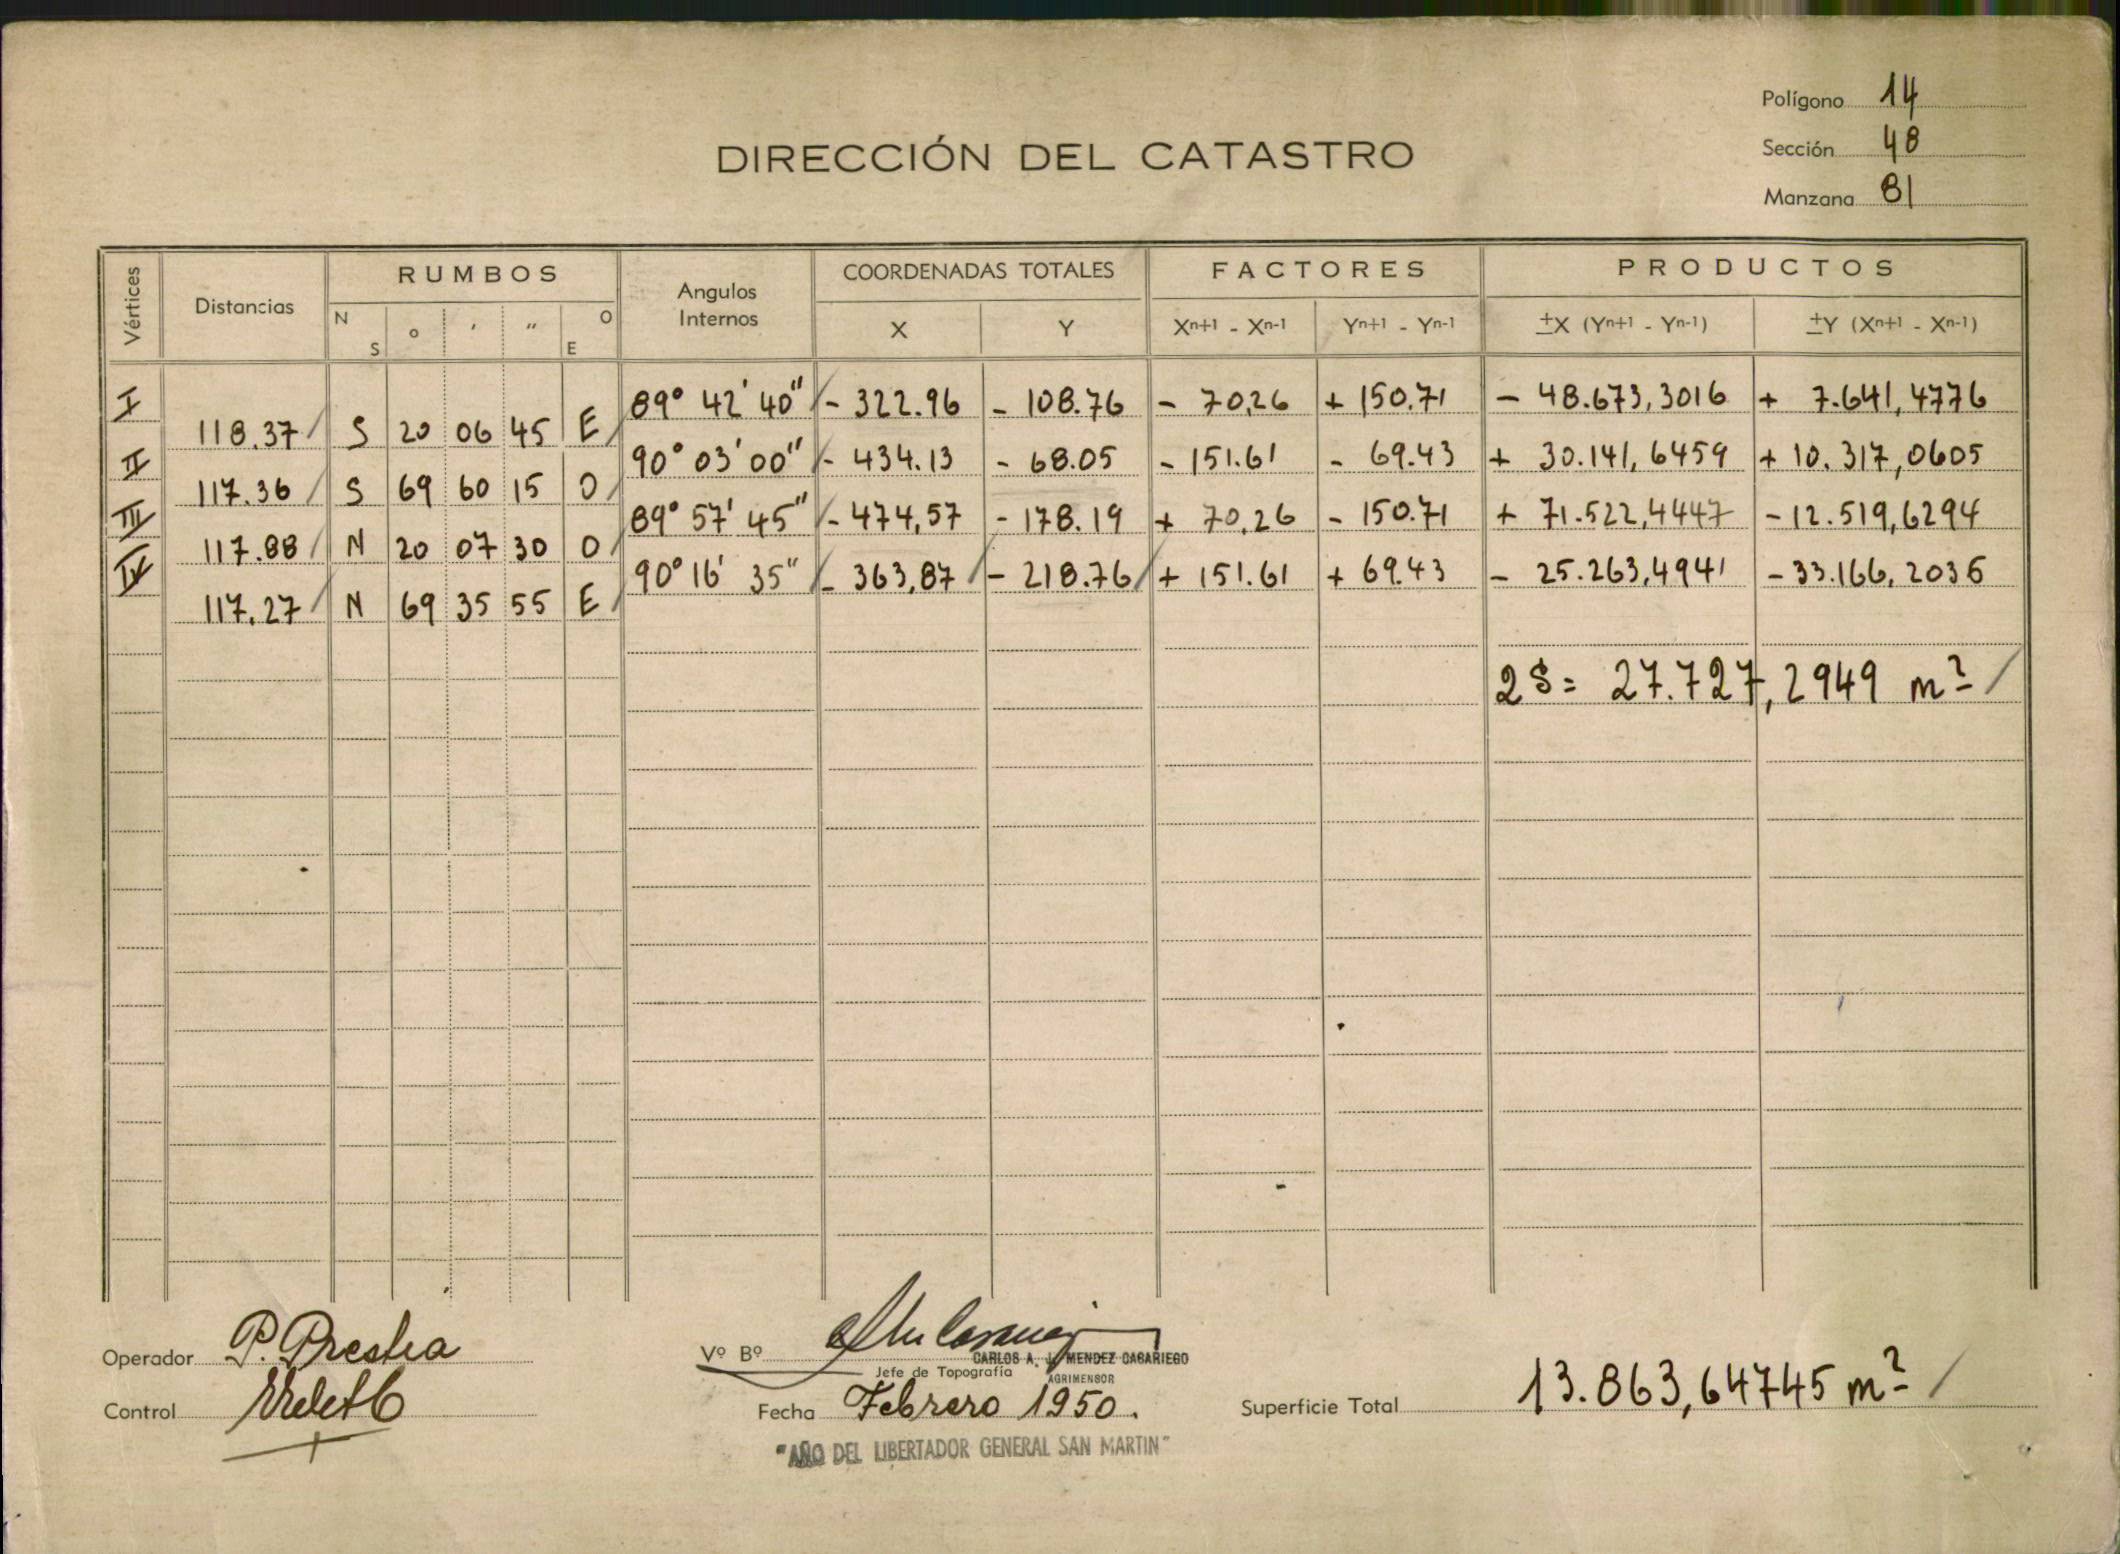 Polígono 14
Sección 48
Manzana 81
DIRECCIÓN DEL CATASTRO
Vértices Distancias RUMBOS Angulos Internos COORDENADAS TOTALES FACTORES PRODUCTOS
N S ° ' " O E X Y Xn+1 - Xn-1 Yn+1 - Yn-1 ±X (Yn+1 - Yn-1) ±Y (Xn+1 - Xn-1)
I 89° 42' 40" - 322.96 - 108.76 - 70,26 + 150.71 - 48.673,3016 + 7.641,4776
118.37 S 20 06 45 E
II 90° 03' 00" - 434.13 - 68.05 - 151.61 - 69.43 + 30.141,6459 + 10.317,0605
117.36 S 69 60 15 O
III 89° 57' 45" - 474,57 - 178.19 + 70,26 - 150.71 + 71.522,4447 - 12.519,6294
117.88 N 20 07 30 O
IV 90° 16' 35" - 363,87 - 218.76 + 151.61 + 69.43 - 25.263,4941 - 33.166,2036
117.27 N 69 35 55 E
2S = 27.727,2949 m²
Operador P. Prestia
Vº Bº
CARLOS A. J. MENDEZ CASARIEGO
Jefe de Topografía
AGRIMENSOR
Control
Fecha Febrero 1950.
Superficie Total 13.863,64745 m²
"AÑO DEL LIBERTADOR GENERAL SAN MARTIN"